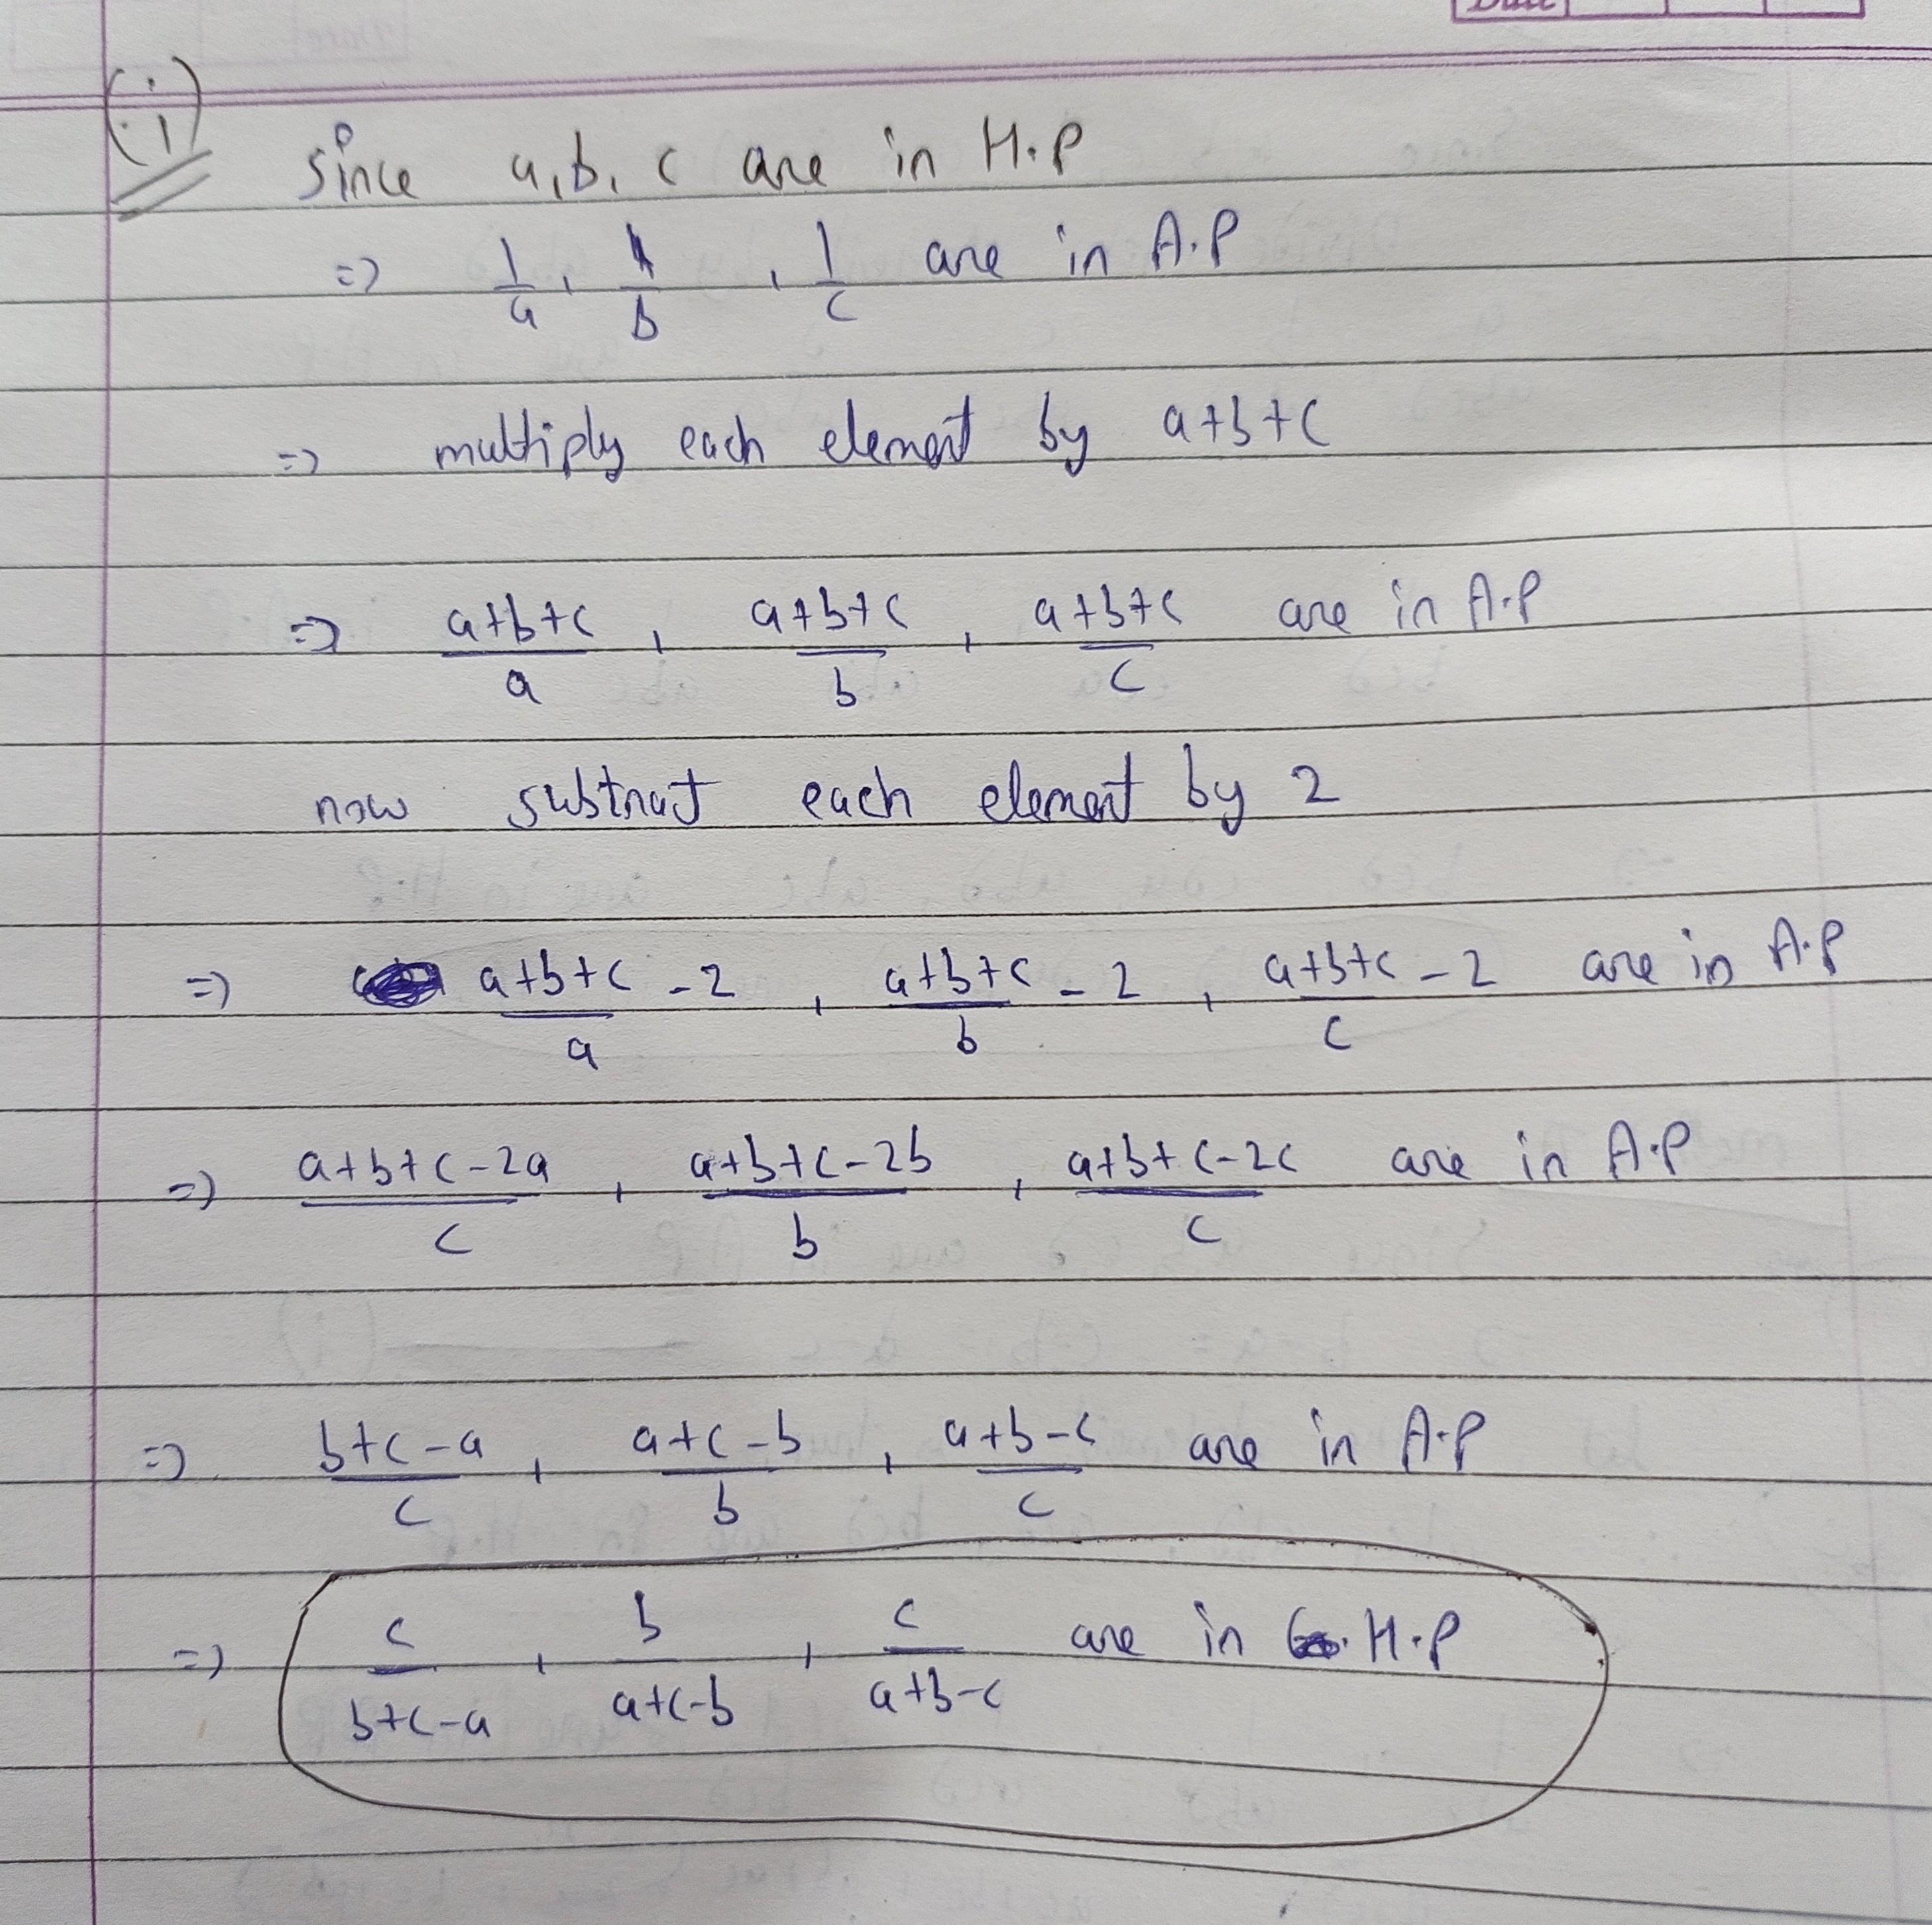 Date
(i)
Since a, b, c are in H.P
=> 1/a, 1/b, 1/c are in A.P
=> multiply each element by a+b+c
=> (a+b+c)/a, (a+b+c)/b, (a+b+c)/c are in A.P
now subtract each element by 2
=> (a+b+c)/a - 2, (a+b+c)/b - 2, (a+b+c)/c - 2 are in A.P
=> (a+b+c-2a)/c, (a+b+c-2b)/b, (a+b+c-2c)/c are in A.P
=> (b+c-a)/c, (a+c-b)/b, (a+b-c)/c are in A.P
=> c/(b+c-a), b/(a+c-b), c/(a+b-c) are in H.P